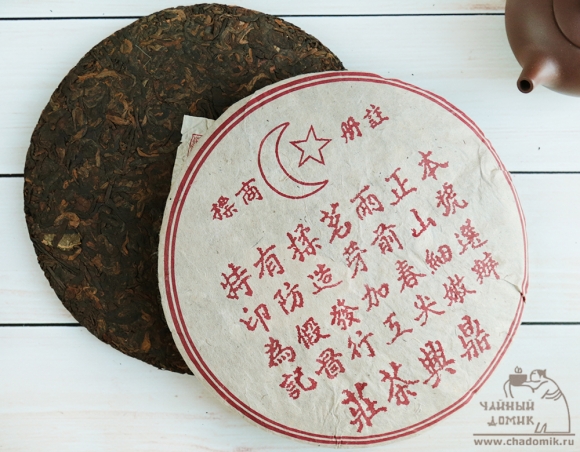 註册
商標
本號選辦
正山細嫩
雨前春火
茗芽加工
揉造發行
有防假圖
特印為記
鼎興茶莊
ЧАЙНЫЙ
ДОМИК
www.chadomik.ru